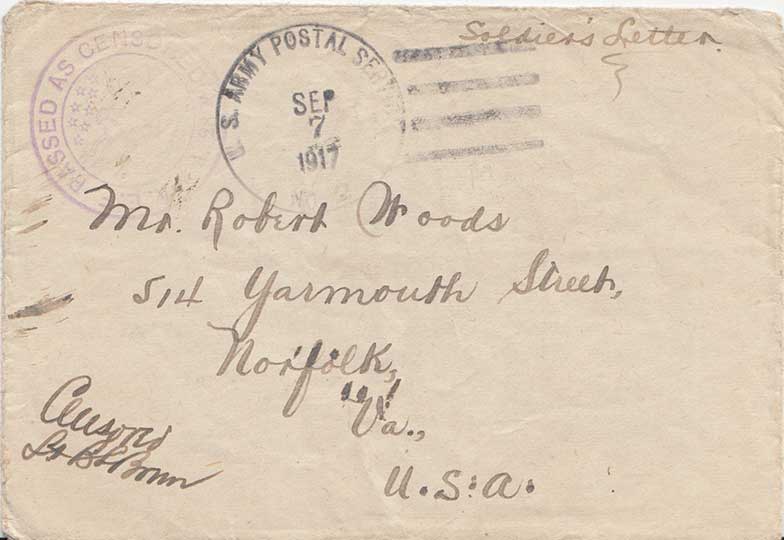 Soldier's Letter.
PASSED AS CENSORED
U. S. ARMY POSTAL SERVICE
SEP
7
1917
NO.
Mr. Robert Woods
514 Yarmouth Street,
Norfolk,
Va.,
U.S.A.
Censored
Lt